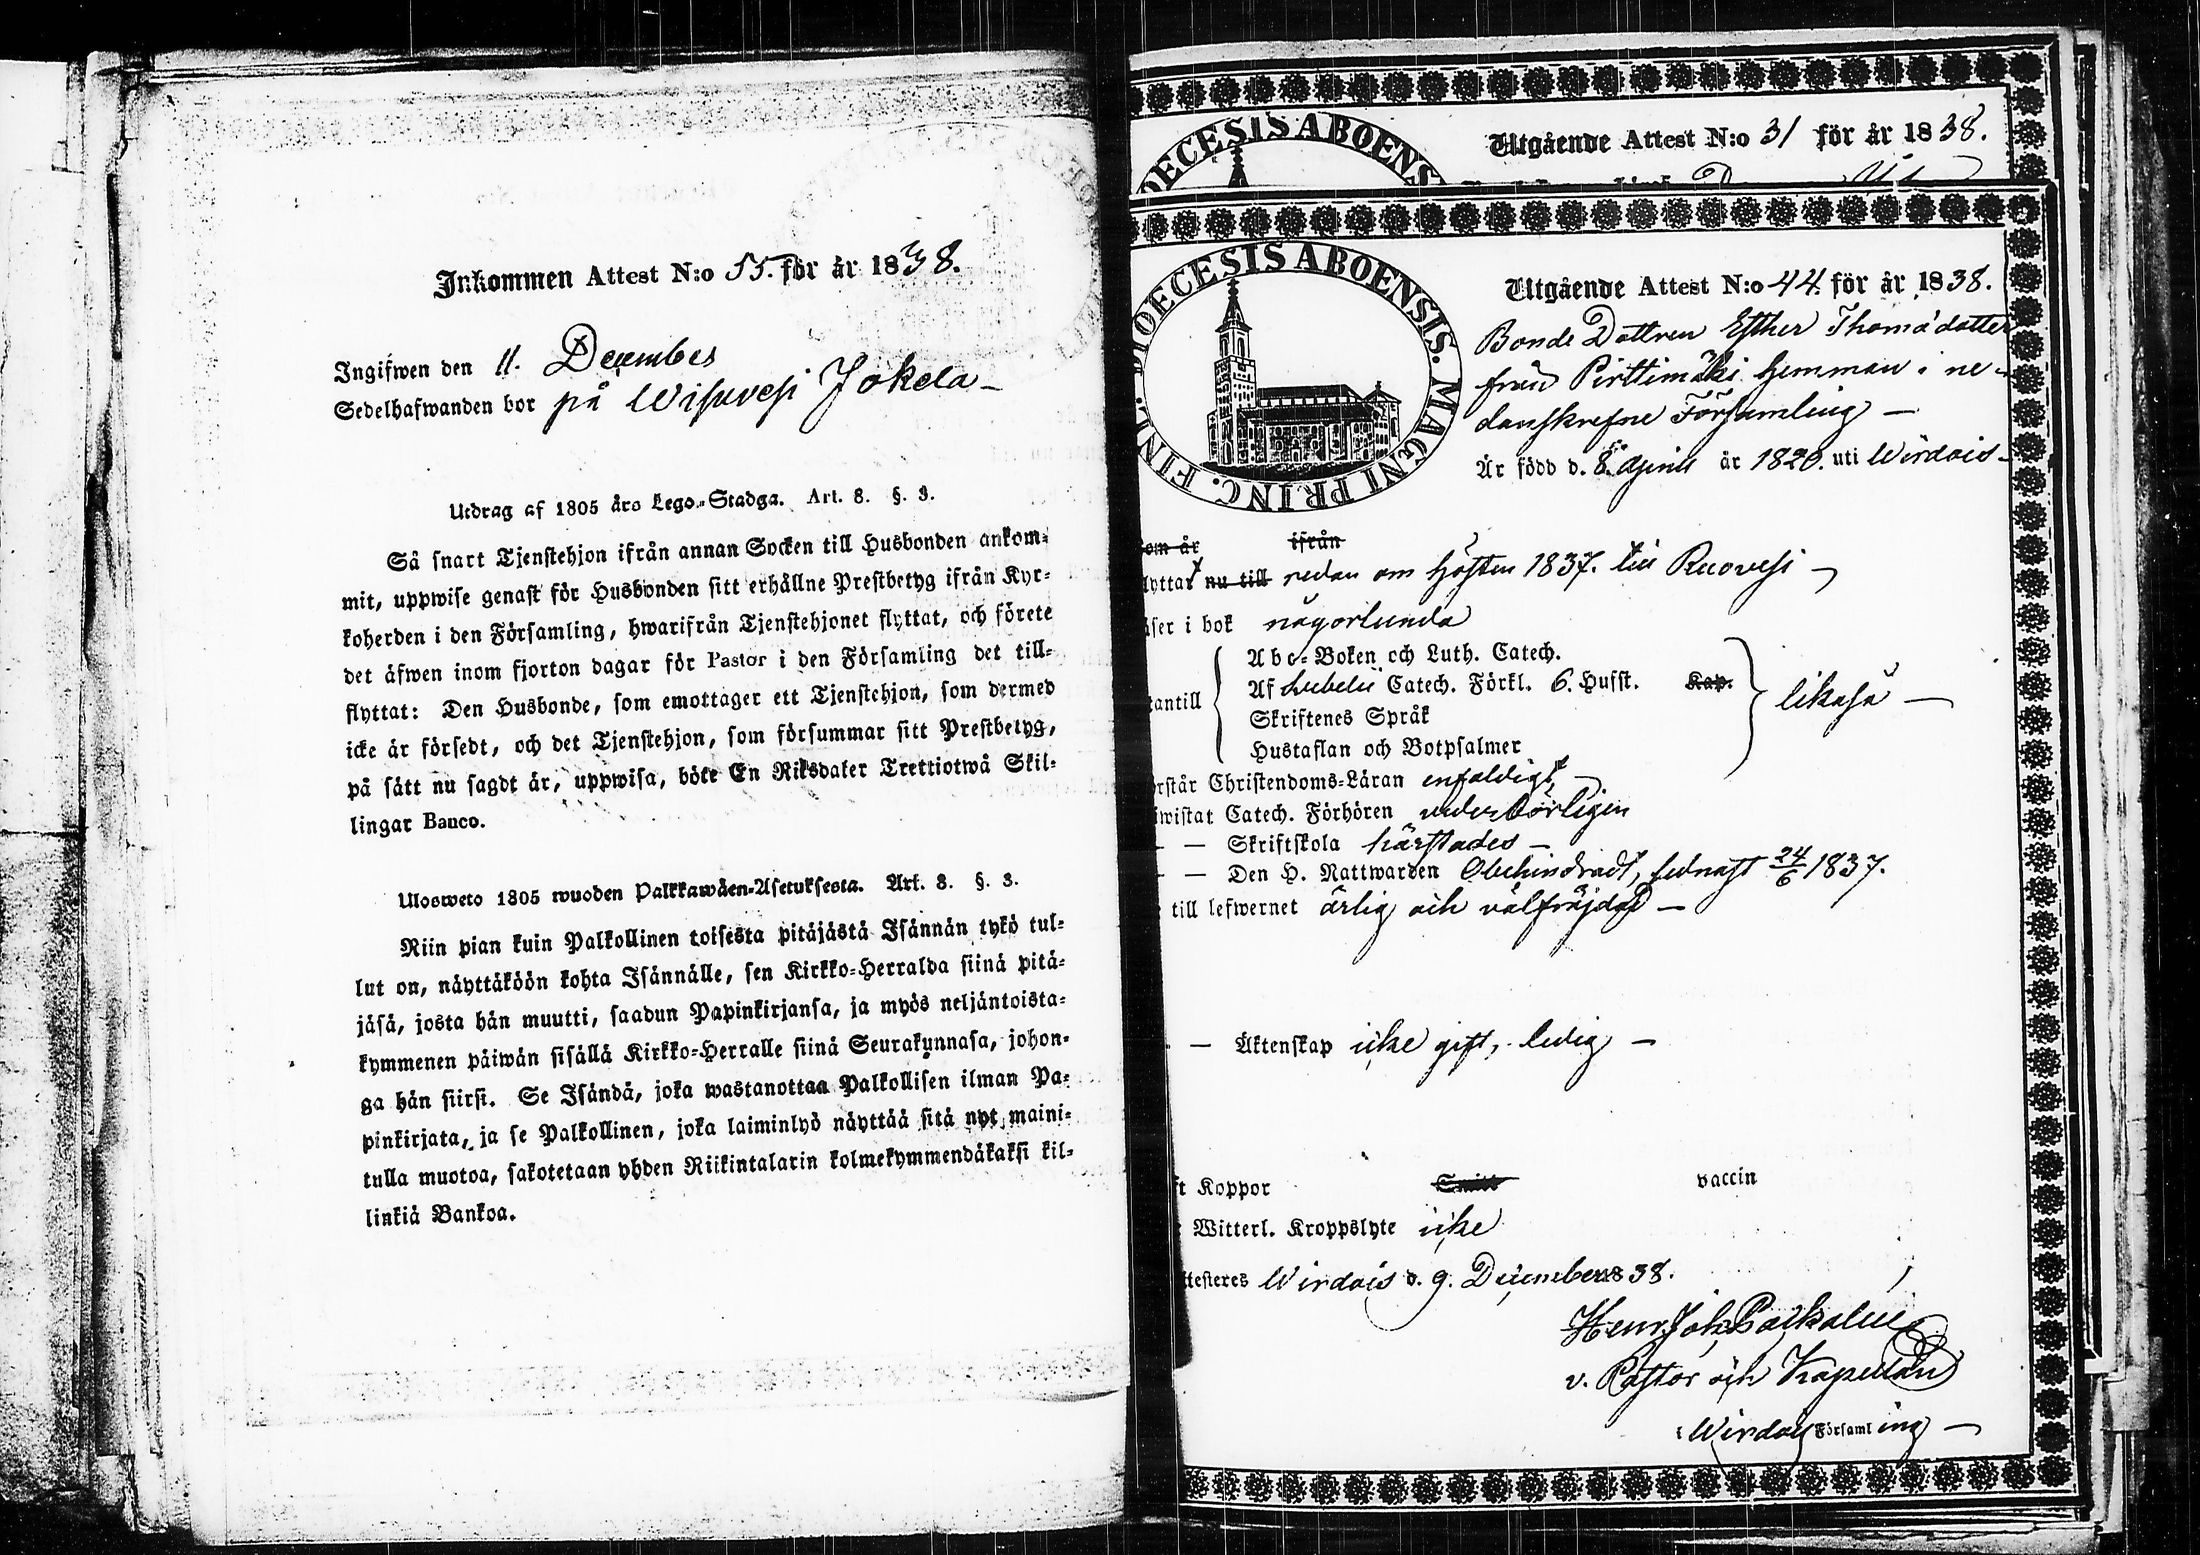 Inkommen Attest N:o 55. för år 1838.
Ingifwen den 11. December
Sedelhafwanden bor på Wisuvesi Jokela –
Utdrag af 1805 års Lego-Stadga. Art. 8. §. 3.
Så snart Tjenstehjon ifrån annan Socken till Husbonden ankom-
mit, uppwise genast för Husbonden sitt erhållne Prestbetyg ifrån Kyr-
koherden i den Församling, hwarifrån Tjenstehjonet flyttat, och förete
det äfwen inom fjorton dagar för Pastor i den Församling det till-
flyttat: Den Husbonde, som emottager ett Tjenstehjon, som dermed
icke är försedt, och det Tjenstehjon, som försummar sitt Prestbetyg,
på sätt nu sagdt är, uppwisa, böte En Riksdaler Trettiotwå Skil-
lingar Banco.
Ulosweto 1805 wuoden Palkkawäen-Asetuksesta. Art. 8. §. 3.
Niin pian kuin Palkollinen toisesta pitäjästä Isännän tykö tul-
lut on, näyttäköön kohta Isännälle, sen Kirkko-Herralda siinä pitä-
jäsä, josta hän muutti, saadun Papinkirjansa, ja myös neljäntoista-
kymmenen päiwän sisällä Kirkko-Herralle siinä Seurakunnasa, johon-
ga hän siirsi. Se Isändä, joka wastanottaa Palkollisen ilman Pa-
pinkirjata, ja se Palkollinen, joka laiminlyö näyttää sitä nyt maini-
tulla muotoa, sakotetaan yhden Riikintalarin kolmekymmendäkaksi kil-
linkiä Bankoa.
DIOECESIS ABOENS
Utgående Attest N:o 31 för år 1838.
DIOECESIS ABOENSIS. MAGNI PRINC. FINL.
Utgående Attest N:o 44. för år 1838.
Bonde Dottren Esther Thomædotter
från Pirttimäki hemman i ne-
danskrefne Församling –
Är född d. 8. Aprill år 1820. uti Wirdois –
om år ifrån
lyttat nu till redan om hösten 1837. till Ruovesi –
äser i bok någorlunda
Abc-Boken och Luth. Catech.
Af Lubelii Catech. Förkl. 6. Hufst. Kap.
tantill Skriftenes Språk likaså –
Hustaflan och Botpsalmer
rstår Christendoms-Läran enfaldigt –
iwistat Catech. Förhören vederbörligen
– – Skriftskola härstädes –
– – Den H. Nattwarden Obehindradt, sednast 24/6 1837.
till lefwernet ärlig och välfräjdad –
– Äktenskap icke gift, ledig –
t Koppor vaccin
Witterl. Kroppslyte icke
ttesteres Wirdois d. 9. December 1838.
Henr. Joh.
v. Pastor och Kapellan
i Wirdois Församling –